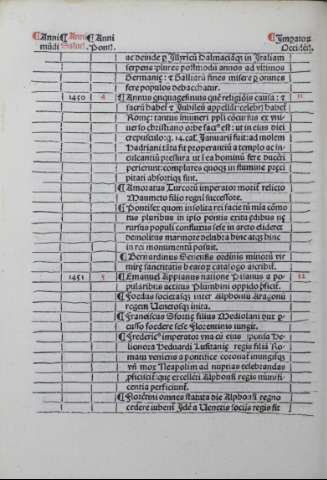 Anni mūdi Anni Salut. Anni Pont. Imperator. Occidēt.
ac deinde p Illyricū Dalmaciāq in Italiam
serpens plures postmodū annos ad vltimos
Germanię : & Galliarū fines misere p omnes
fere populos debacchatur.
1450 4 Annus qnquagesimus quē religiōis causa : & 11
sacrū habēt & Iubileū appellāt celebrat habet
Romę: tantus innumeri ppli cōcursus et vni
uerso christiano orbe factus est: ut in eius diei
crepusculo: q. 14. cal. Januarii fuit: ad molem
Hadriani tāta sit properantiū a templo ac in
culcantiū pressura ut sea hominū fere ducēti
perierunt: complures quoqs in flumine pręci
pitati absorptiqs sint.
Amoratus Turcorū imperator moritur relicto
Maumeto filio regni successore.
Pontifex quom insolita rei facie tū mia cōmo
tus pluribus in ipso pontis exitu ędibus nę
rursus populi confluxus sese in arcto elideret
demolitus marmore delabra hinc atqs hinc
in rei monumentū posuit.
Bernardinus Senensis ordinis minorū vir
mirę sanctitatis beatorum catalogo ascribitur.
1451 5 Emanuel Appianus natione Pisanus a po 12
pularibus accitus Plumbini oppido pficitur.
Foedus societasqs inter Alphonsū Aragonū
regem Venetosqs inita.
Franciscus Sfortia filius Mediolani dux p
cusso foedere sese Florentinis iungit.
Fredericus imperator vna cū eius sponsa De
lionora Heduardi Lusitanię regis filia Ro
mam veniens a pontifice coronatur inungiturqs
vn mox Neapolim ad nuptias celebrandas
pficiscitur quę excellēti Alphonsi regis munifi
centia perficiuntur.
Florētini omnes statuta die Alphonsi regno
cedere iubentur Idem a Venetis sociis regis fit